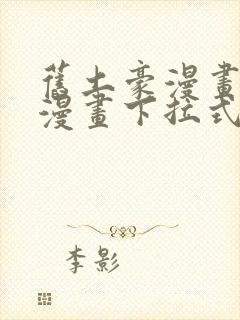 舊土豪漫畫
漫畫下拉式
李影